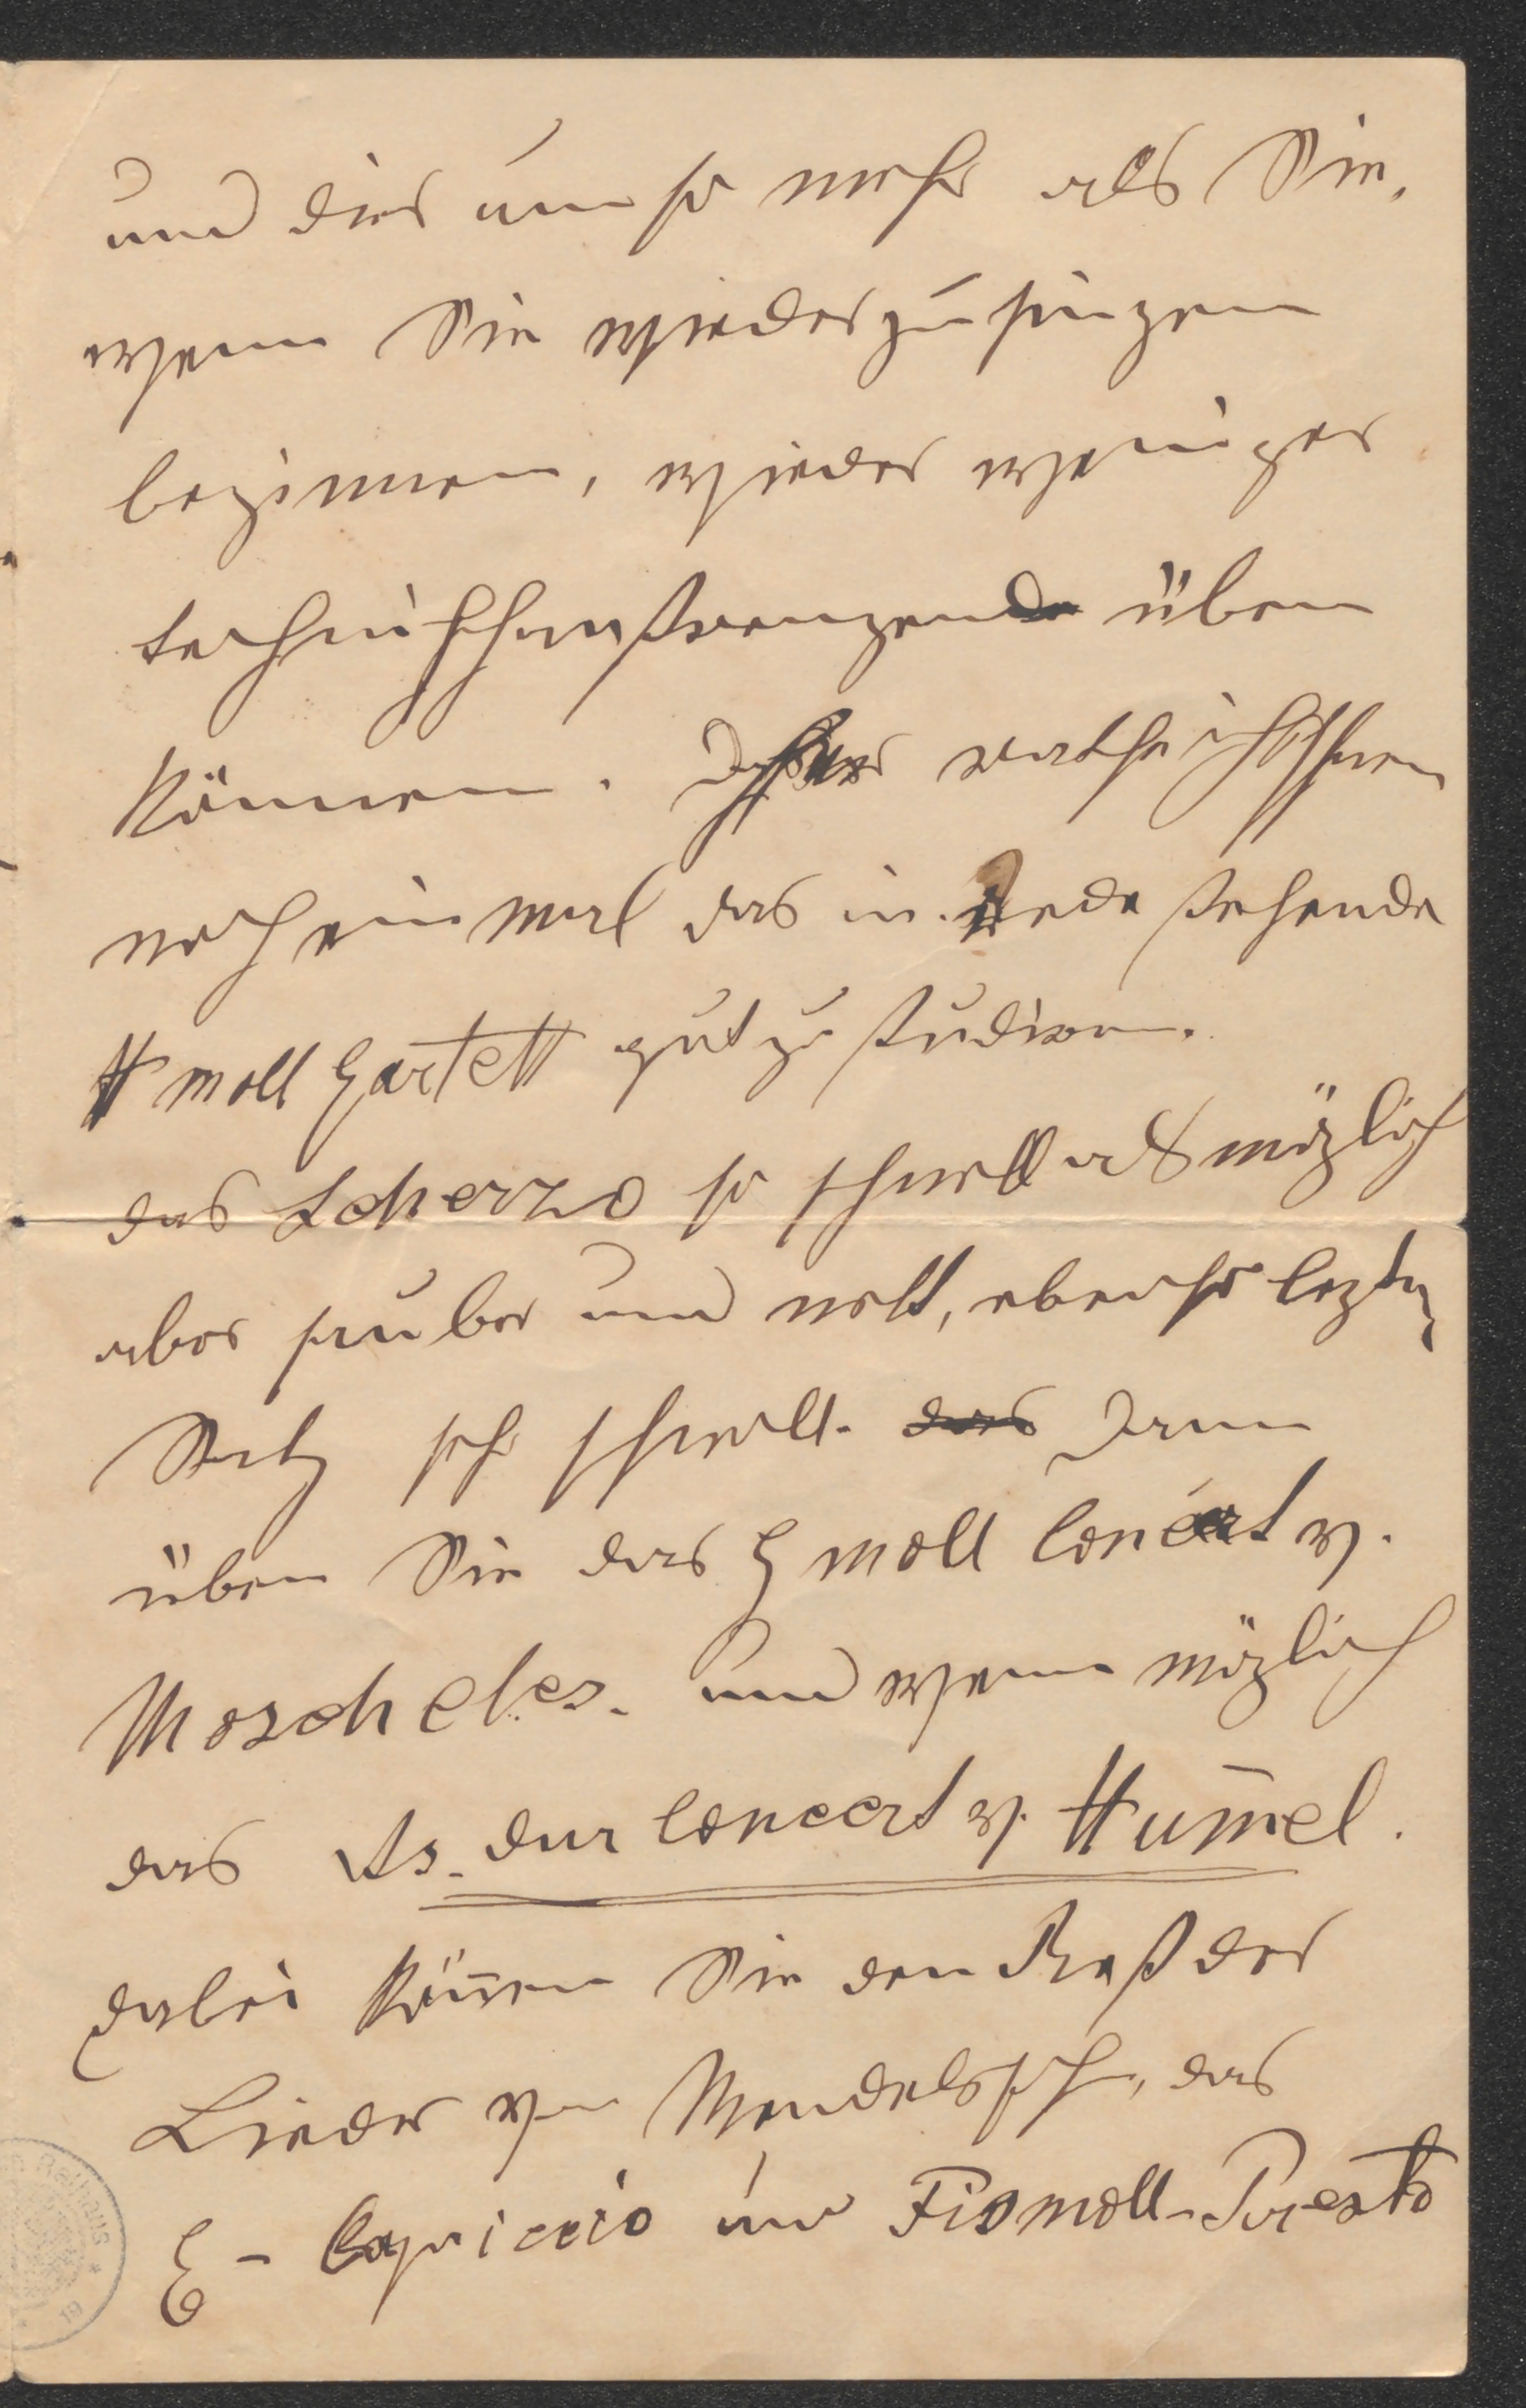 und dies um so mehr als Sie,
wenn Sie wieder zu singen
beginnen, wieder weniger
technisch anstrengend üben
können. Daher rathe ich Ihnen
noch einmal das in Rede stehende
H moll Qartett gut zu studiren.
das Scherzo so schnell als möglich
aber sauber und nett, ebenso lezter
Satz sehr schnell. das Dann
üben Sie das G moll Concert v.
Moscheles. und wenn möglich
das As. dur Concert v. Hum̄el.
dabei kön̄en Sie den Rest der
Lieder von Mendelssohn, das
E - Capriccio und Fismoll-Presto
Rathaus
19